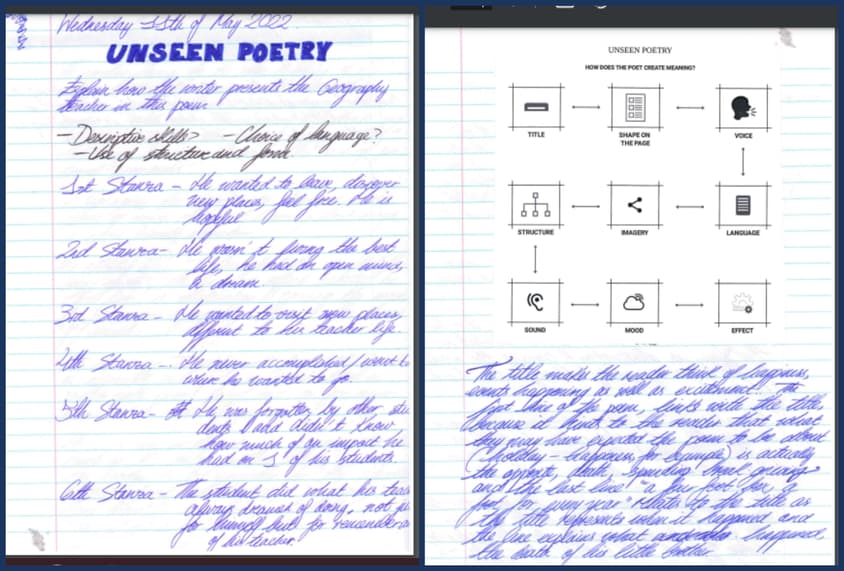 Wednesday 11th of May 2022
UNSEEN POETRY
Explain how the writer presents the Geography
teacher in this poem
- Descriptive skills? - Choice of language?
- Use of structure and form
1st Stanza - He wanted to leave, discover
new places, feel free. He is
hopeful
2nd Stanza - He wasn't living the best
life, he had an open mind,
a dream
3rd Stanza - He wanted to visit new places,
different to his teacher life
4th Stanza - He never accomplished / went to
where he wanted to go.
5th Stanza - He was forgotten by other stu
dents and didn't know
how much of an impact he
had on 1 of his students.
6th Stanza - The student did what his teac
always dreamed of doing, not ju
for himself but for remember
of his teacher.
UNSEEN POETRY
HOW DOES THE POET CREATE MEANING?
TITLE
SHAPE ON
THE PAGE
VOICE
STRUCTURE
IMAGERY
LANGUAGE
SOUND
MOOD
EFFECT
The title makes the reader think of happiness,
events happening as well as excitement. The
first line of the poem, links with the title,
because it hints to the reader that what
they may have expected the poem to be about
(holiday - happiness for example) is actually
the opposite, death, spending break grieving
and the last line "a four foot box, a
foot for every year" relates to the title as
the title represents when it happened and
the line explains what happened.
the death of his little brother